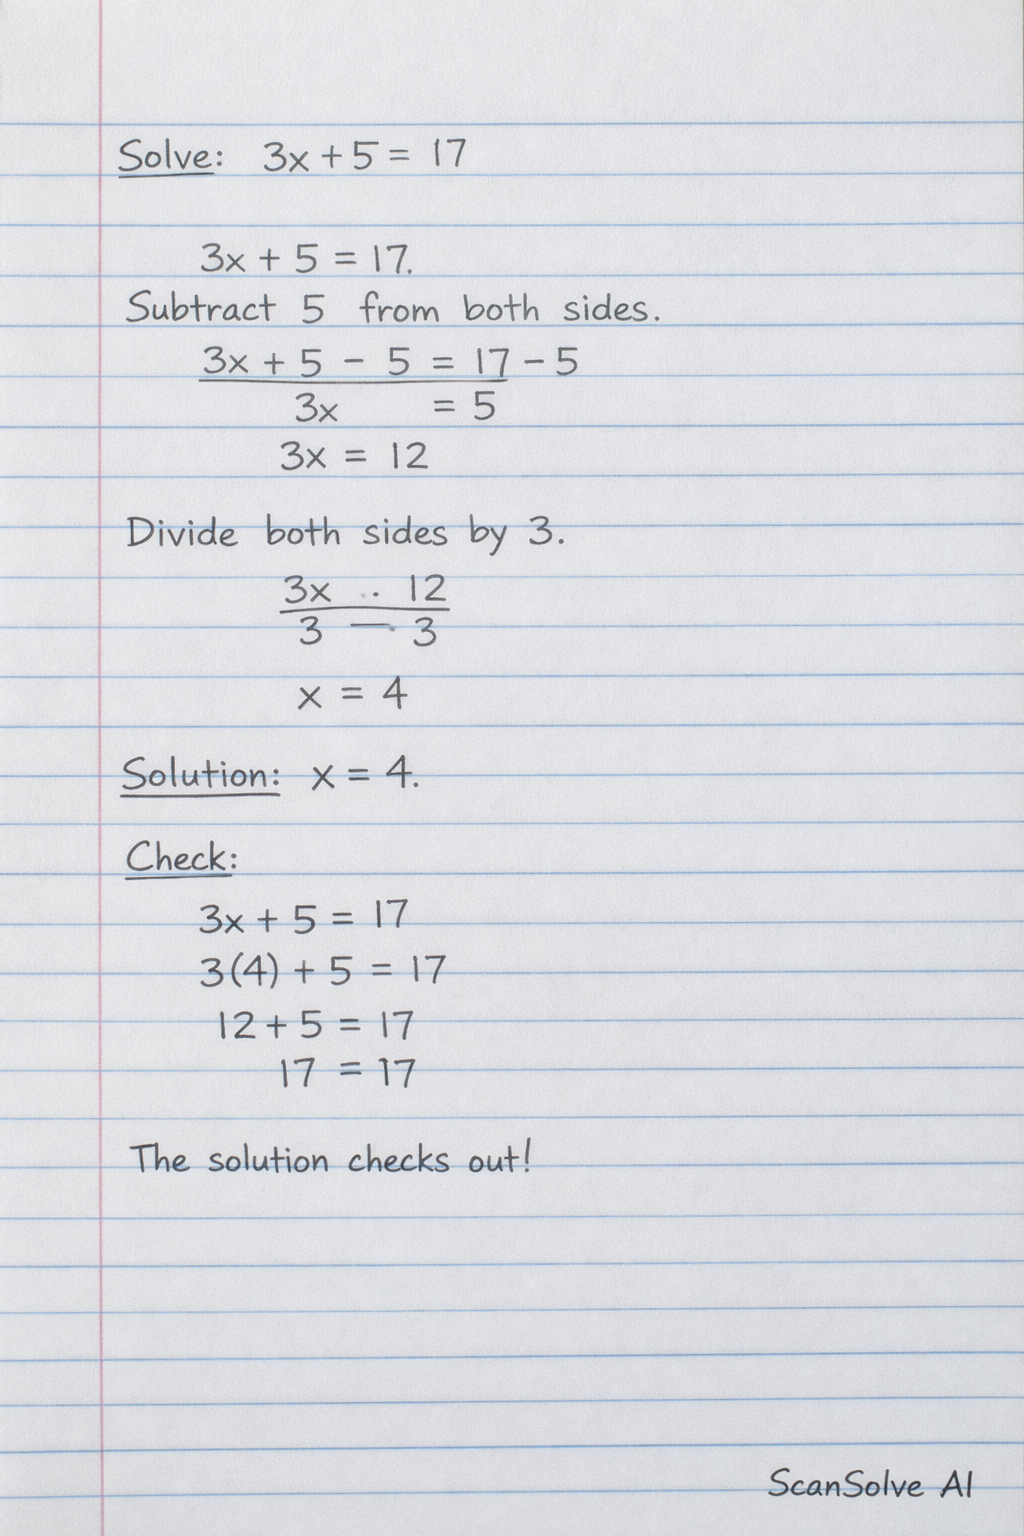 Solve: 3x + 5 = 17
3x + 5 = 17.
Subtract 5 from both sides.
3x + 5 - 5 = 17 - 5
3x = 5
3x = 12
Divide both sides by 3.
3x .. 12
3 — 3
x = 4
Solution: x = 4.
Check:
3x + 5 = 17
3(4) + 5 = 17
12 + 5 = 17
17 = 17
The solution checks out!
ScanSolve AI